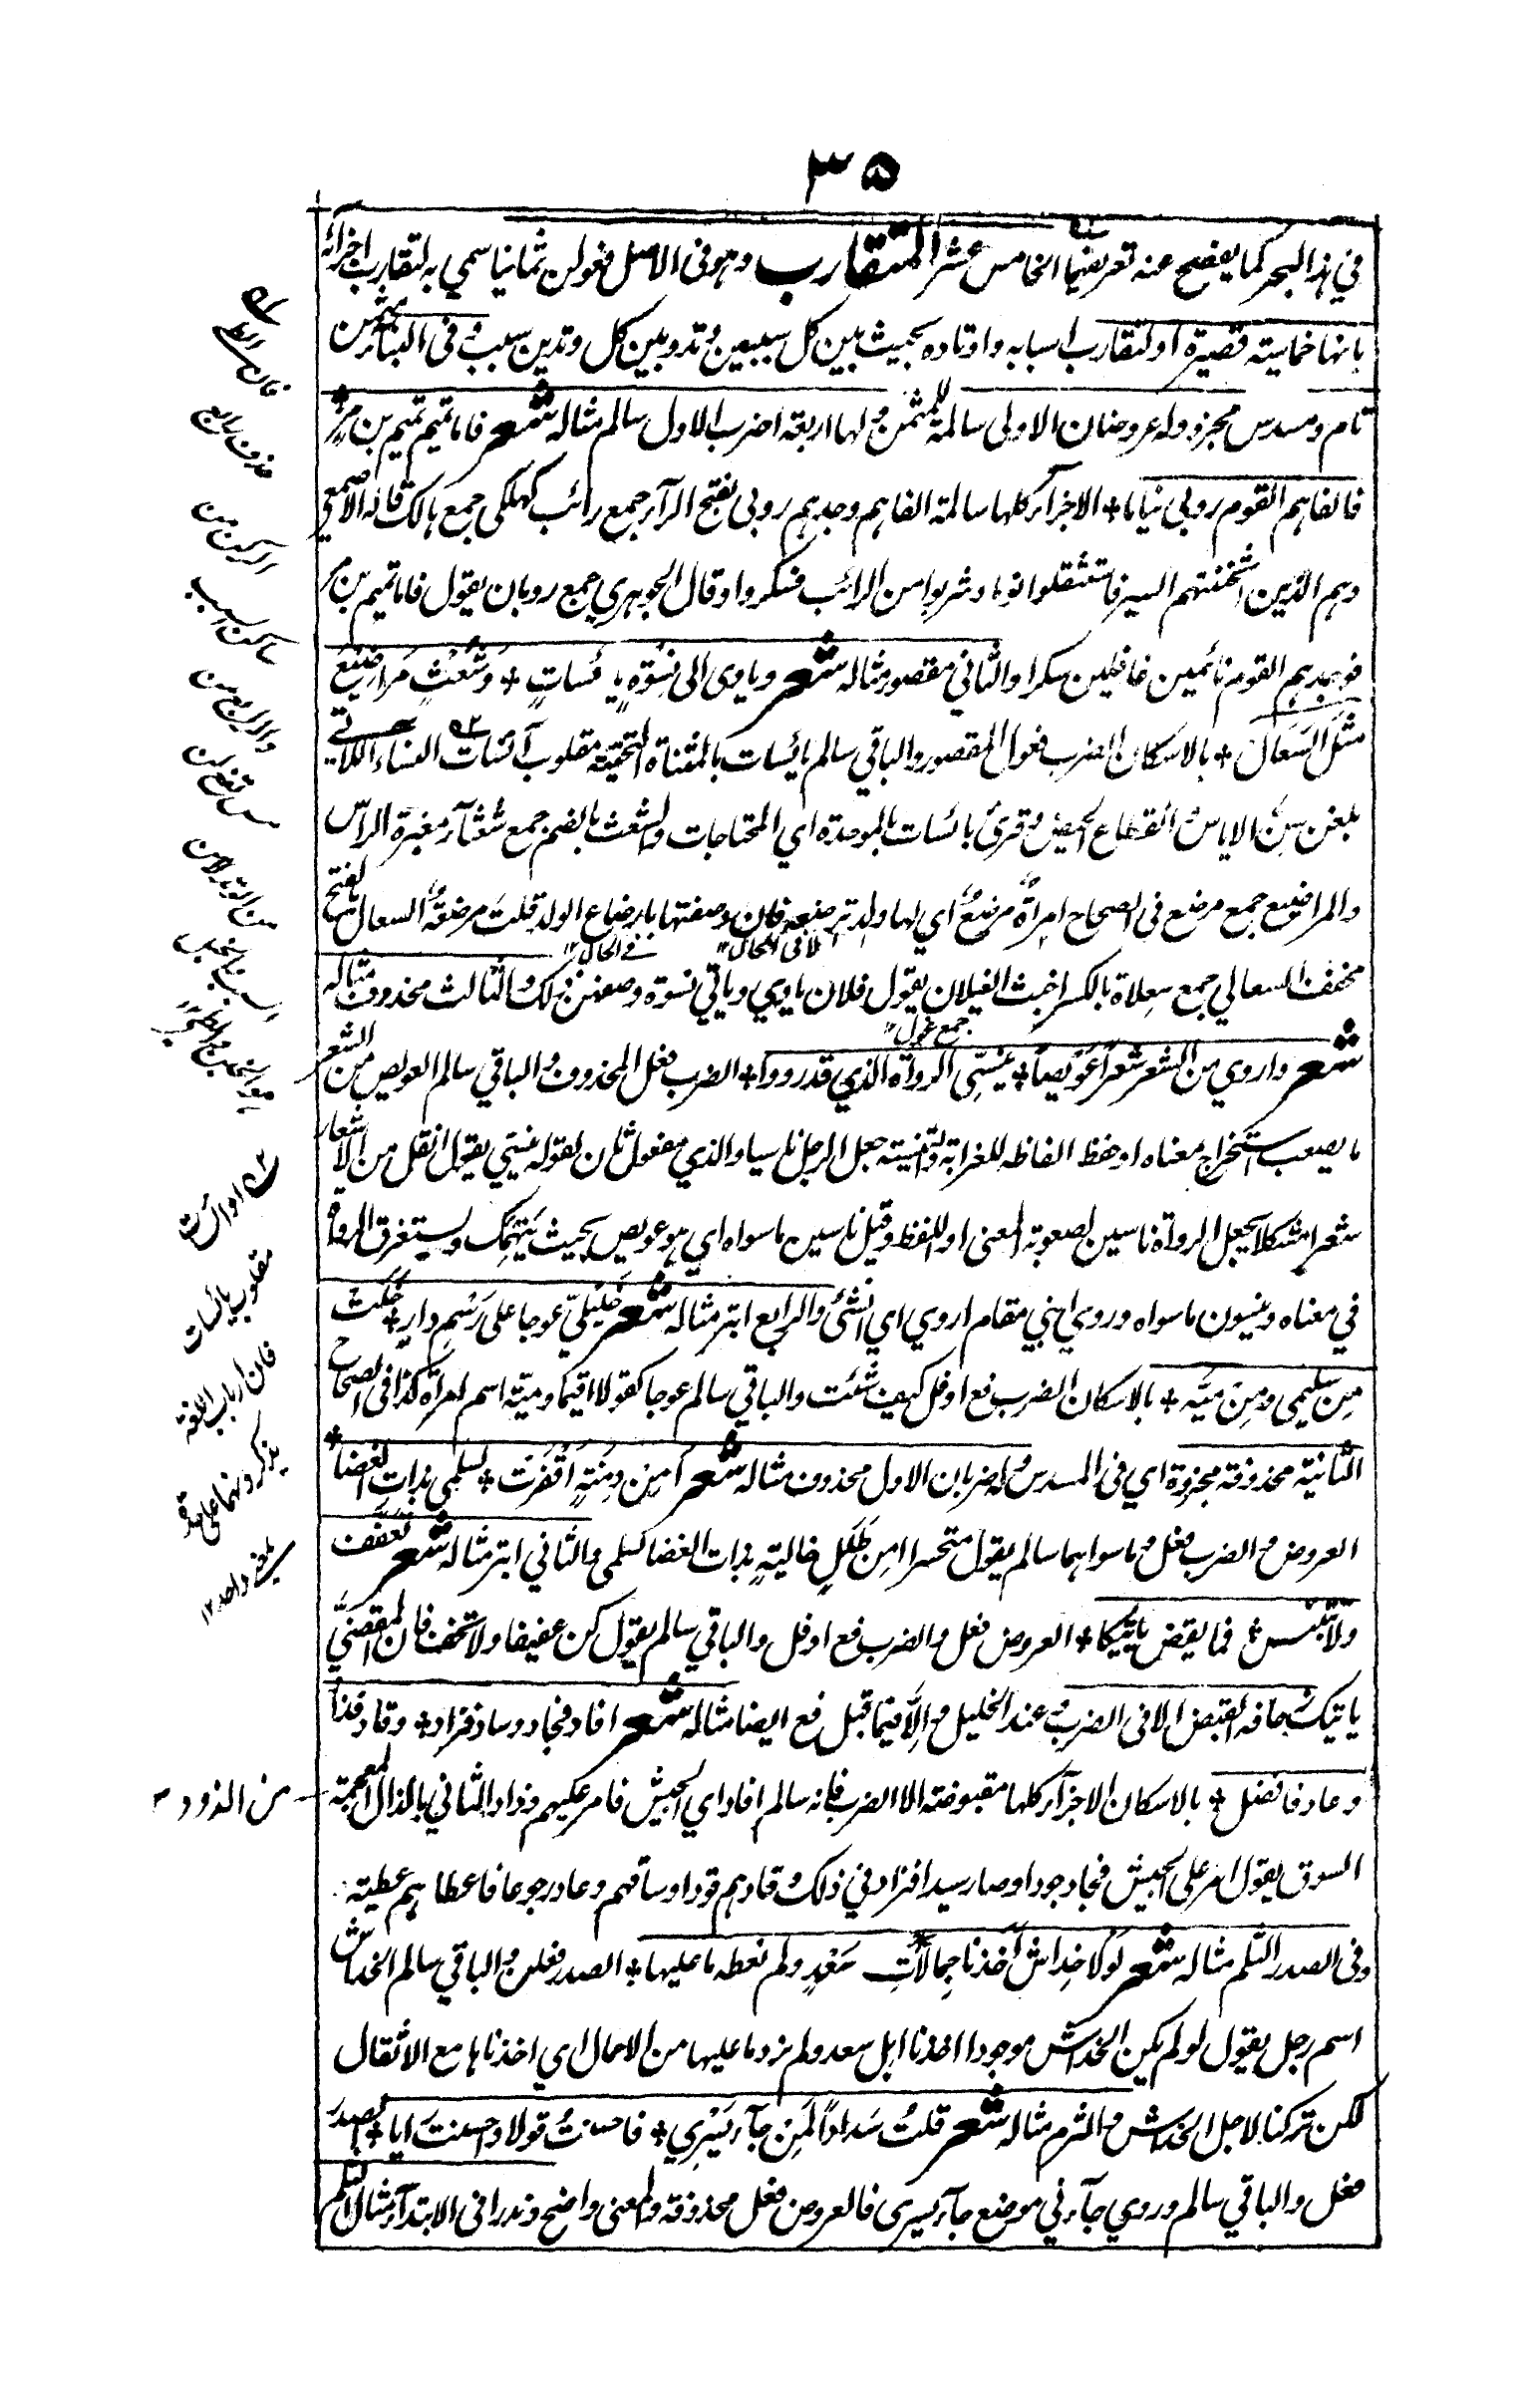 ٣٥
في هذا البحر كما يفصح عنه تعريفها الخامس عشر المتقارب وهو في الاصل فعولن ثمانيا سمي به لتقارب اجزائه
بانها خماسية قصيرة او لتقارب اسبابه واوتاده بحيث بين كل سببين وتد وبين كل وتدين سبب وفى البناء مثمن
تام ومسدس مجزو وله عروضان الاولى سالمة للمثمن ولها اربعة اضرب الاول سالم مثاله شعر فاما تميم تميم بن مر +
فالفاهم القوم روبى نياما + الاجزآء كلها سالمة الفاهم وجدهم روبى بفتح الرآء جمع رائب كهلكى جمع هالك قاله الاصمعي
وهم الذين اثخنتهم السير فاستثقلوا نوما وشربوا من الرائب فسكروا وقال الجوهري جمع روبان يقول فاما تميم بن مر
فوجدهم القوم نائمين غافلين سكرا والثاني مقصور مثاله شعر وياوى الى نِسْوَةٍ يائسات + وَشُعْثٍ مَراضِيْعَ
مثل السَعَالْ + بالاسكان الضرب فعول المقصور والباقي سالم يائسات بالمثناة التحتية مقلوب آئسات النساء اللاتي
بلغن سِنّ الاياس انقطاع الحيض وقرئ بائسات بالموحدة اي المحتاجات والشعث بالضم جمع شعثآء مغبرة الراس
والمراضيع جمع مرضع فى الصحاح امرأة مرضع اي لها ولد ترضعه فان وصفتها بارضاع الولد قلت مرضعة السعال بالفتح
لا فى الحال ١٢ في الحال ١٢
مخفف السعالي جمع سعلاة بالكسر اخبث الغيلان يقول فلان ياوي وياتي نسوة وصفهن ذلك والثالث محذوف مثاله
جمع غول ١٢
شعر واروي من الشعر شعرا عَوِيْصاً + يُنَسِّى الرواة الذي قد رووا + الضرب فعل المحذوف والباقي سالم العويص من الشعر
ما يصعب استخراج معناه او حفظ الفاظه للغرابة والتنسية جعل الرجل ناسيا والذي مفعول ثان لقوله ينسي يقول انقل من الاشعار
شعرا مشكلا يجعل الرواة ناسين لصعوبة المعنى او اللفظ وقيل ناسين ما سواه اي هو عويص بحيث ينهمك ويستغرق الرواة
في معناه وينسون ما سواه وروي ابني مقام اروي اي انشئ والرابع ابتر مثاله شعر خَلِيْلَيّ عوجا على رَسْمِ دارٍ + خَلَتْ
مِن سُلَيمى ومِنْ مَيّه + بالاسكان الضرب فع او فل كيف شئت والباقي سالم عوجا كقولا اقيما ومية اسم امرأة كذا فى الصحاح
الثانية محذوفة مجزوة اي فى المسدس وله ضربان الاول محذوف مثاله شعر اَمِنْ دِمْنَةٍ اَقْفَرَت + لسلمى بذات الغضا +
العروض والضرب فعل وما سواهما سالم يقول متحسرا امن طَلَلٍ خاليةٍ بذات الغضا لسلمى والثاني ابتر مثاله شعر تَعَفَّف
ولا تَبْتَئِس + فما يقض ياتيكا + العروض فعل والضرب فع او فل والباقي سالم يقول كن عفيفا ولا تخف فان المقضيّ
ياتيك زحافه القبض الا فى الضرب عند الخليل والا فيما قبل فع ايضا مثاله شعر افاد فجاد وساد فزاد + وقاد فذاد
وعاد فافضل + بالاسكان الاجزآء كلها مقبوضة الا الضرب فانه سالم افاد اي الجيش فامر عليهم وذاد الثاني بالذال المعجمة
السوق يقول امر على الجيش فجاد جودا وصار سيدا فزاد في ذلك وقادهم قودا وساقهم وعاد رجوعا فاعطاهم عطية
وفى الصدر الثلم مثاله شعر لَوْلا خِداش اَخَذنا جِمالات سَعْدٍ ولم نعطه ما عليها + الصدر فعلن والباقي سالم الخداش
اسم رجل يقول لو لم يكن الخداش موجودا اخذنا ابل سعد ولم نرد ما عليها من الاحمال اي اخذناها مع الاثقال
لكن تركنا لاجل الخداش والثرم مثاله شعر قلتُ سَداداً لمَنْ جآء يَسْرِي + فاحسنتُ قولا واحسنتَ رايا + الصدر
فعل والباقي سالم وروي جآءني موضع جآء يسرى فالعروض فعل محذوفة والمعنى واضح وندرا فى الابتدآء مثال الثلم
الركن من
ساكن السبب
والرابع من
٥٢ او آئسات
مقلوب يائسات
فان ارباب اللغة
يذكرونهما على
من الذود